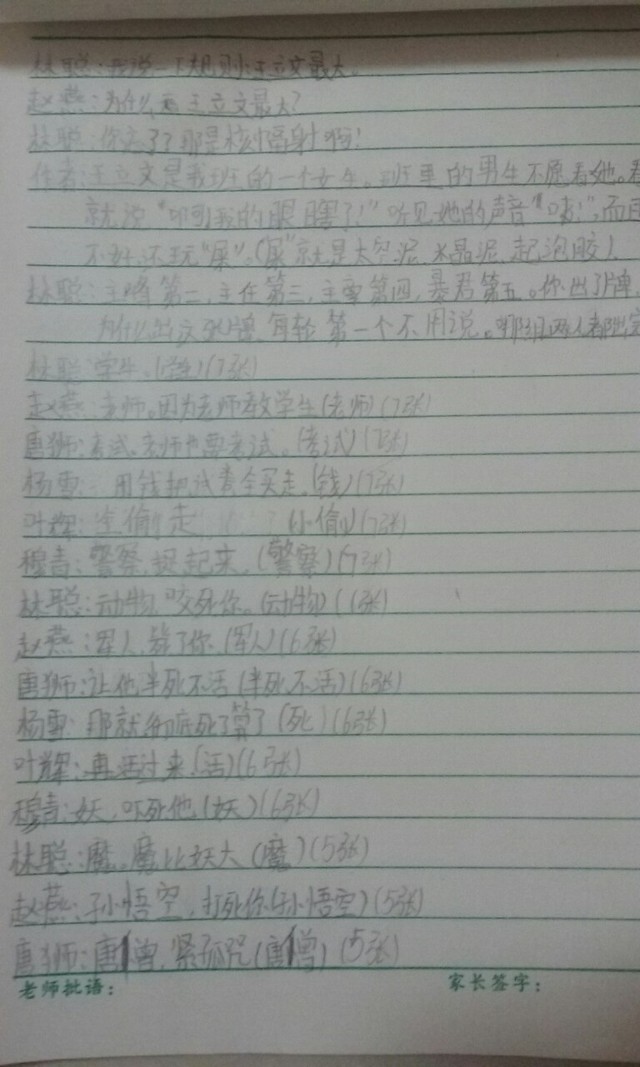 林聪:我说一下规则:王立文最大。
赵燕:为什么王立文最大?
林聪:你忘了?那是核辐射啊!
作者:王立文是我班的一个女生。班里的男生不愿看她。看
就说“啊!我的眼瞎了!”听见她的声音“咦!”,而且
不好,还玩“屎”。(“屎”就是太空泥、水晶泥、起泡胶)
林聪:主峰第二,主任第三,主要第四,暴君第五。你出了牌,
为什么出这张牌,每轮第一个不用说。哪组两人都出完
林聪:学生。(学生)(7张)
赵燕:老师。因为老师教学生(老师)(7张)
唐狮:考试。老师也要考试。(考试)(7张)
杨雪:用钱把试卷全买走。(钱)(7张)
叶辉:全偷走(小偷)(7张)
穆青:警察,捉起来。(警察)(7张)
林聪:动物,咬死你。(动物)(6张)
赵燕:军人,毙了你。(军人)(6张)
唐狮:让他半死不活(半死不活)(6张)
杨雪:那就彻底死了算了(死)(6张)
叶辉:再活过来。(活)(6张)
穆青:妖,吓死他(妖)(6张)
林聪:魔。魔比妖大(魔)(5张)
赵燕:孙悟空,打死你(孙悟空)(5张)
唐狮:唐僧,紧箍咒(唐僧)(5张)
老师批语: 家长签字: